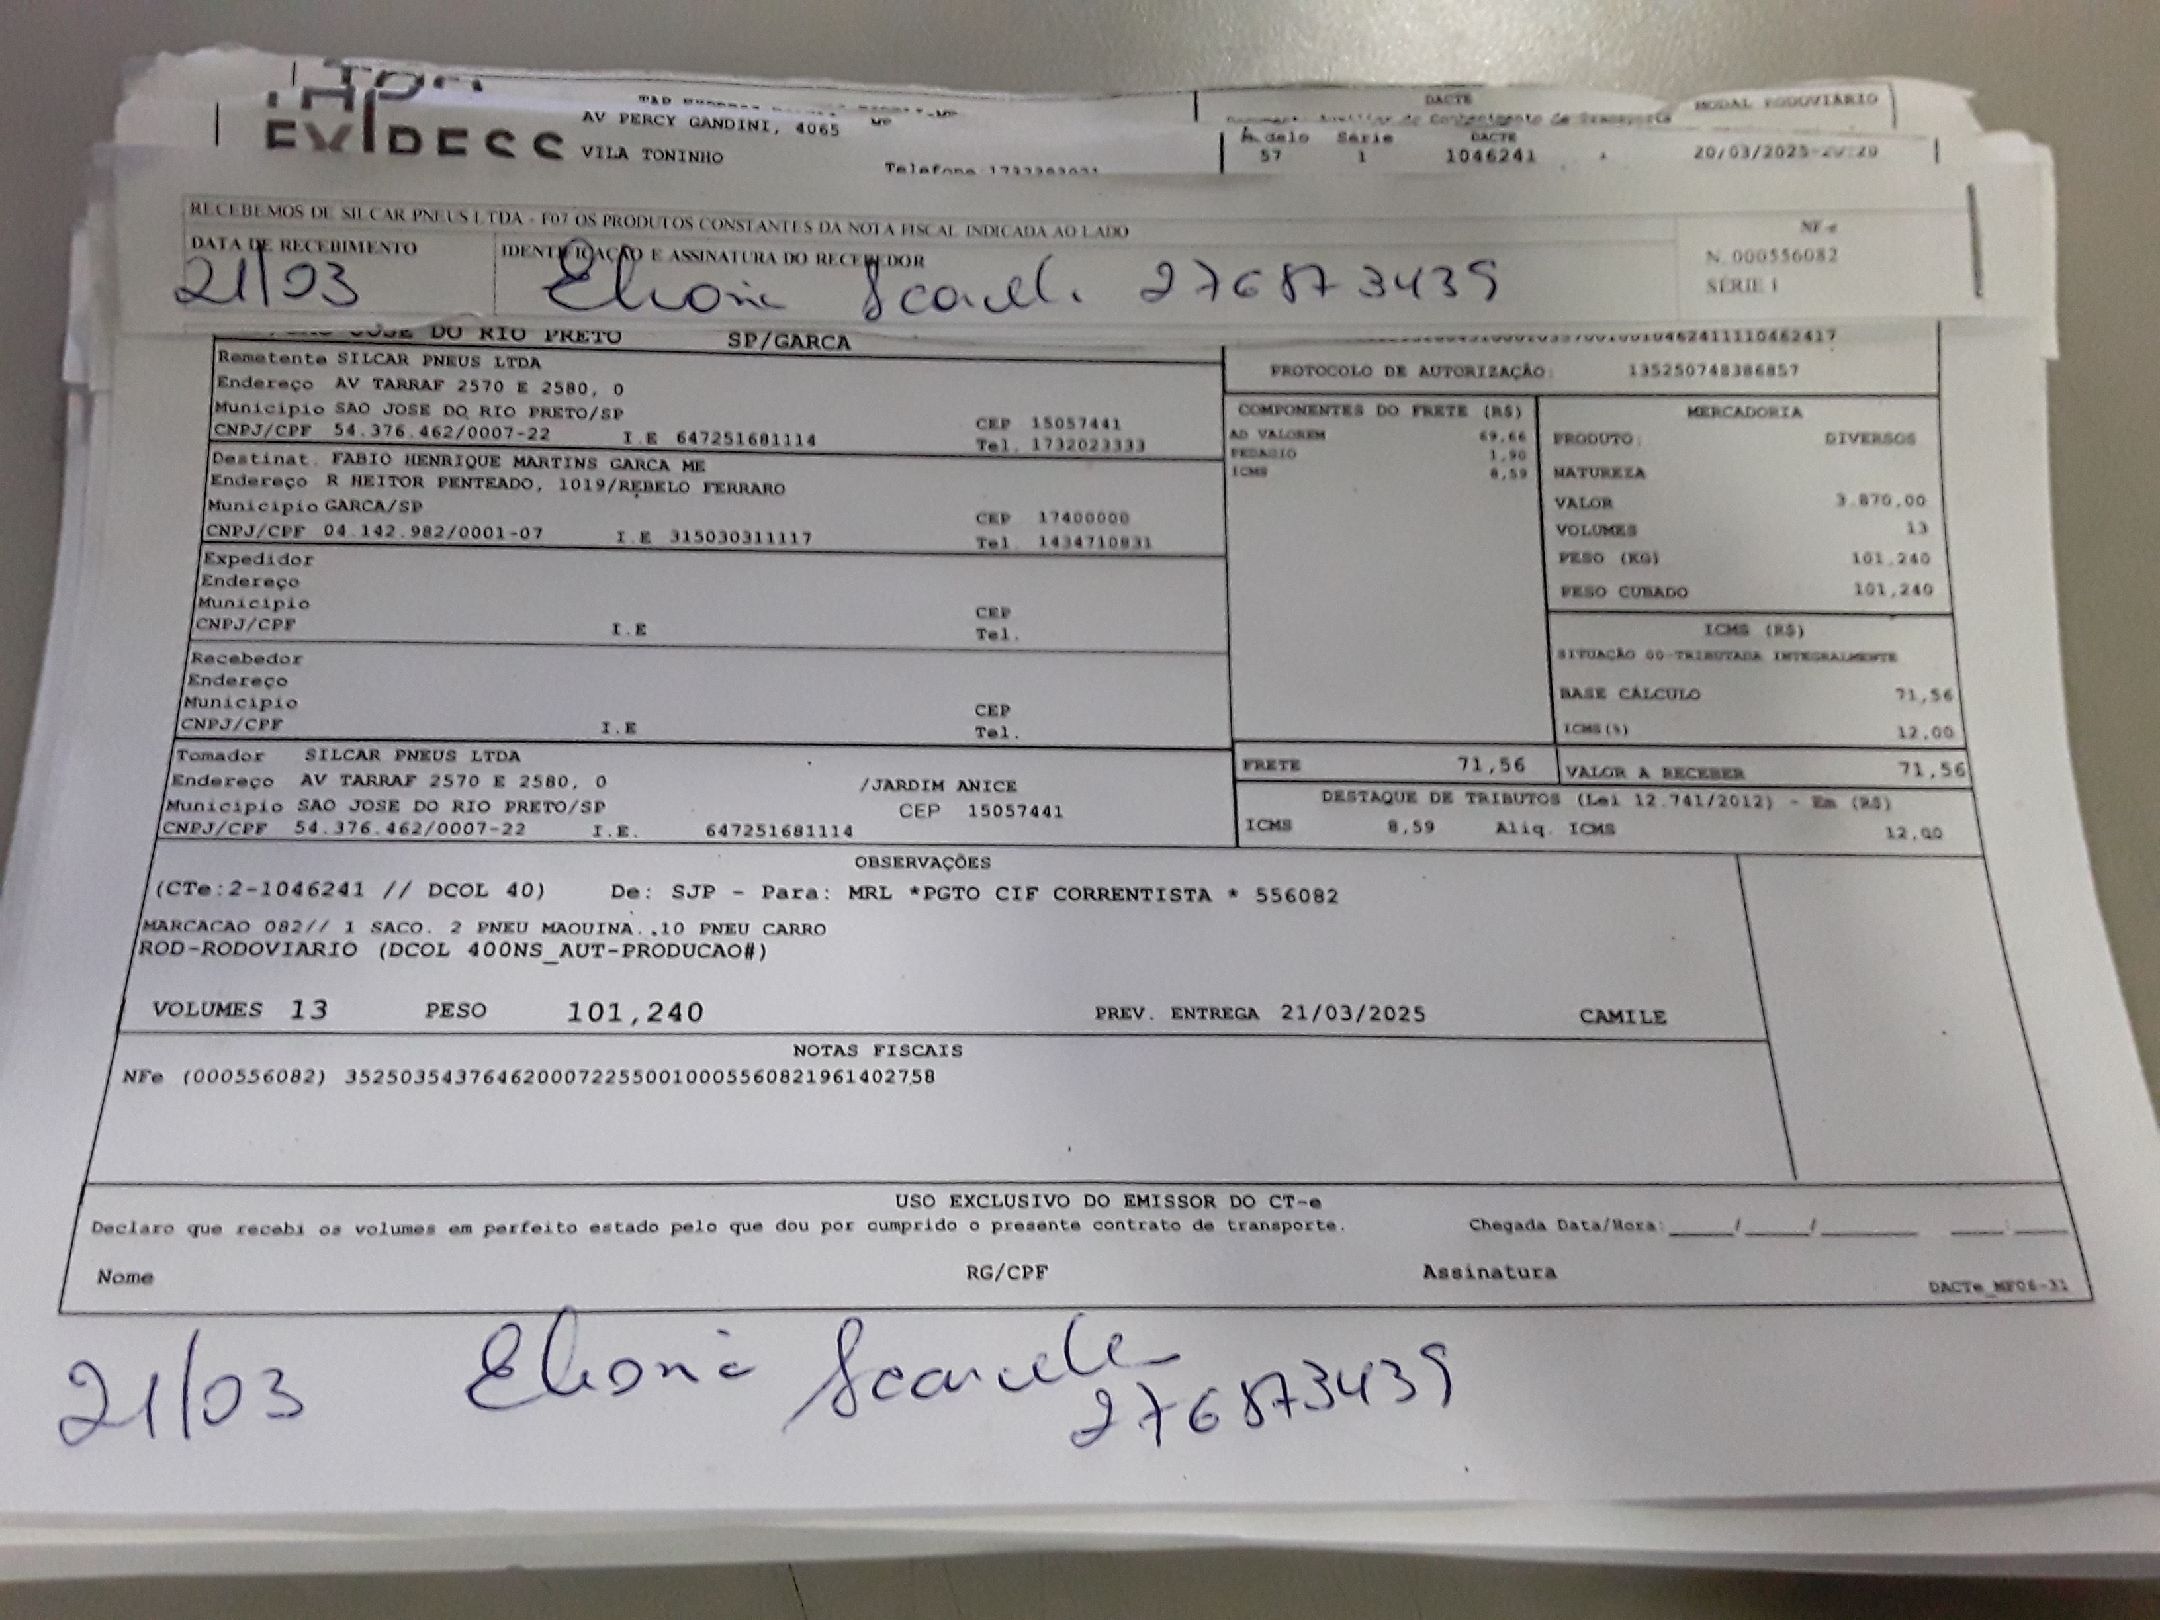 EXPRESS
AV PERCY GANDINI, 4065
VILA TONINHO
DACTE
MODAL RODOVIÁRIO
Modelo Série DACTE
57 1 1046241 20/03/2025
RECEBEMOS DE SILCAR PNEUS LTDA - F07 OS PRODUTOS CONSTANTES DA NOTA FISCAL INDICADA AO LADO
DATA DE RECEBIMENTO
IDENTIFICAÇÃO E ASSINATURA DO RECEBEDOR
NF-e
N. 000556082
SÉRIE 1
21/03
276873439
JOSE DO RIO PRETO SP/GARCA
Remetente SILCAR PNEUS LTDA
Endereço AV TARRAF 2570 E 2580, 0
Municipio SAO JOSE DO RIO PRETO/SP CEP 15057441
CNPJ/CPF 54.376.462/0007-22 I.E 647251681114 Tel. 1732023333
PROTOCOLO DE AUTORIZAÇÃO: 135250748386857
Destinat. FABIO HENRIQUE MARTINS GARCA ME
Endereço R HEITOR PENTEADO, 1019/REBELO FERRARO
Municipio GARCA/SP CEP 17400000
CNPJ/CPF 04.142.982/0001-07 I.E 315030311117 Tel. 1434710831
Expedidor
Endereço
Municipio CEP
CNPJ/CPF I.E Tel.
Recebedor
Endereço
Municipio CEP
CNPJ/CPF I.E Tel.
Tomador SILCAR PNEUS LTDA
Endereço AV TARRAF 2570 E 2580, 0 /JARDIM ANICE
Municipio SAO JOSE DO RIO PRETO/SP CEP 15057441
CNPJ/CPF 54.376.462/0007-22 I.E. 647251681114
COMPONENTES DO FRETE (R$)
AD VALOREM 69,66
PEDAGIO 1,90
ICMS 8,59
MERCADORIA
PRODUTO: DIVERSOS
NATUREZA
VALOR 3.870,00
VOLUMES 13
PESO (KG) 101,240
PESO CUBADO 101,240
ICMS (R$)
SITUAÇÃO 00-TRIBUTADA INTEGRALMENTE
BASE CÁLCULO 71,56
ICMS(%) 12,00
FRETE 71,56 VALOR A RECEBER 71,56
DESTAQUE DE TRIBUTOS (Lei 12.741/2012) - Em (R$)
ICMS 8,59 Aliq. ICMS 12,00
OBSERVAÇÕES
(CTe:2-1046241 // DCOL 40) De: SJP - Para: MRL *PGTO CIF CORRENTISTA * 556082
MARCACAO 082// 1 SACO. 2 PNEU MAQUINA..10 PNEU CARRO
ROD-RODOVIARIO (DCOL 400NS_AUT-PRODUCAO#)
VOLUMES 13 PESO 101,240 PREV. ENTREGA 21/03/2025 CAMILE
NOTAS FISCAIS
NFe (000556082) 35250354376462000722550010005560821961402758
USO EXCLUSIVO DO EMISSOR DO CT-e
Declaro que recebi os volumes em perfeito estado pelo que dou por cumprido o presente contrato de transporte. Chegada Data/Hora: / / :
Nome RG/CPF Assinatura
DACTe_MF06-31
21/03
276873439